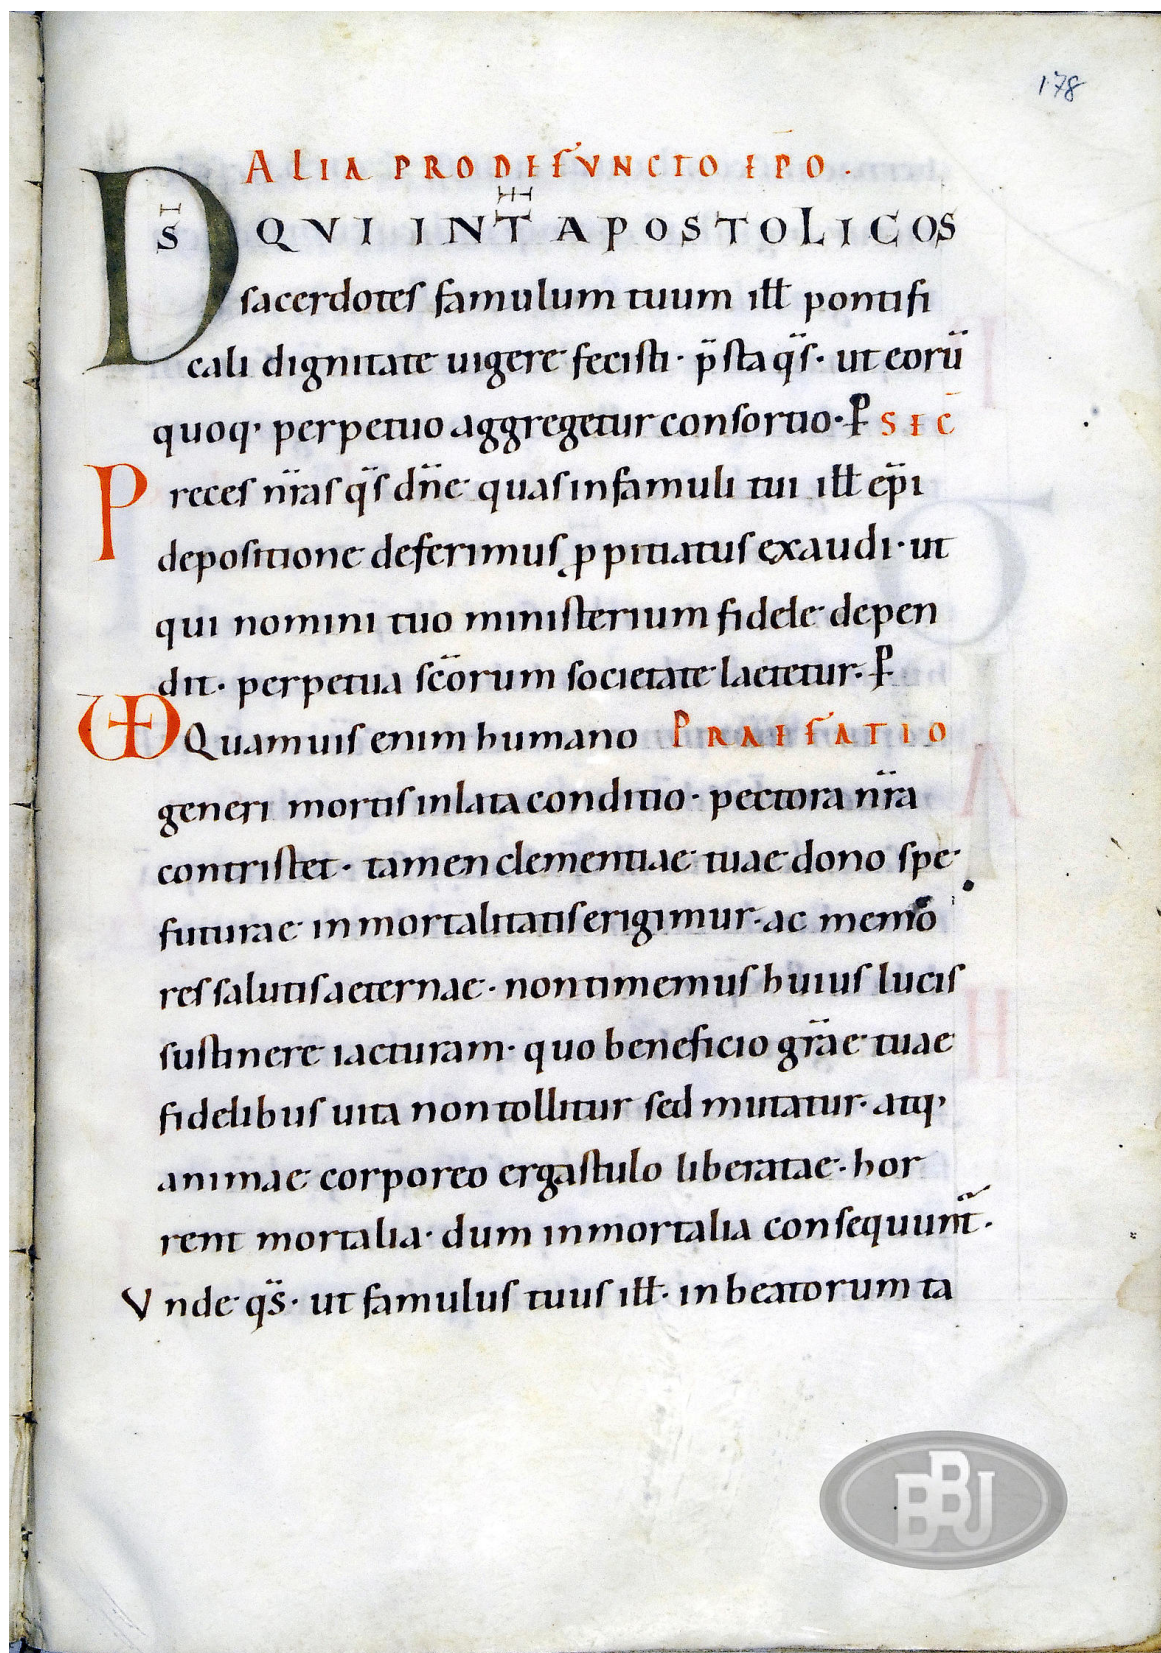 178
ALIA PRO DEFUNCTO EP̄O.
DS̄ QVI INT̄ APOSTOLICOS
sacerdotes famulum tuum ill̄ pontifi
cali dignitate uigere fecisti· p̄sta q̄s· ut eorū
quoq· perpetuo aggregetur consortio· P̱ SEC̄
Preces nr̄as q̄s dn̄e quas in famuli tui ill̄ ep̄i
depositione deferimus ꝓpitiatus exaudi· ut
qui nomini tuo ministerium fidele depen
dit· perpetua sc̄orum societate laetetur· P̱
VD Quamuis enim humano PRAEFATIO
generi mortis inlata conditio· pectora nr̄a
contristet· tamen clementiae tuae dono spe
futurae inmortalitatis erigimur· ac memo
res salutis aeternae· non timemus huius lucis
sustinere iacturam· quo beneficio gr̄ae tuae
fidelibus uita non tollitur sed mutatur· atq·
animae corporeo ergastulo liberatae· hor
rent mortalia· dum inmortalia consequunt̄·
Vnde q̄s· ut famulus tuus ill̄· in beatorum ta
BBJ